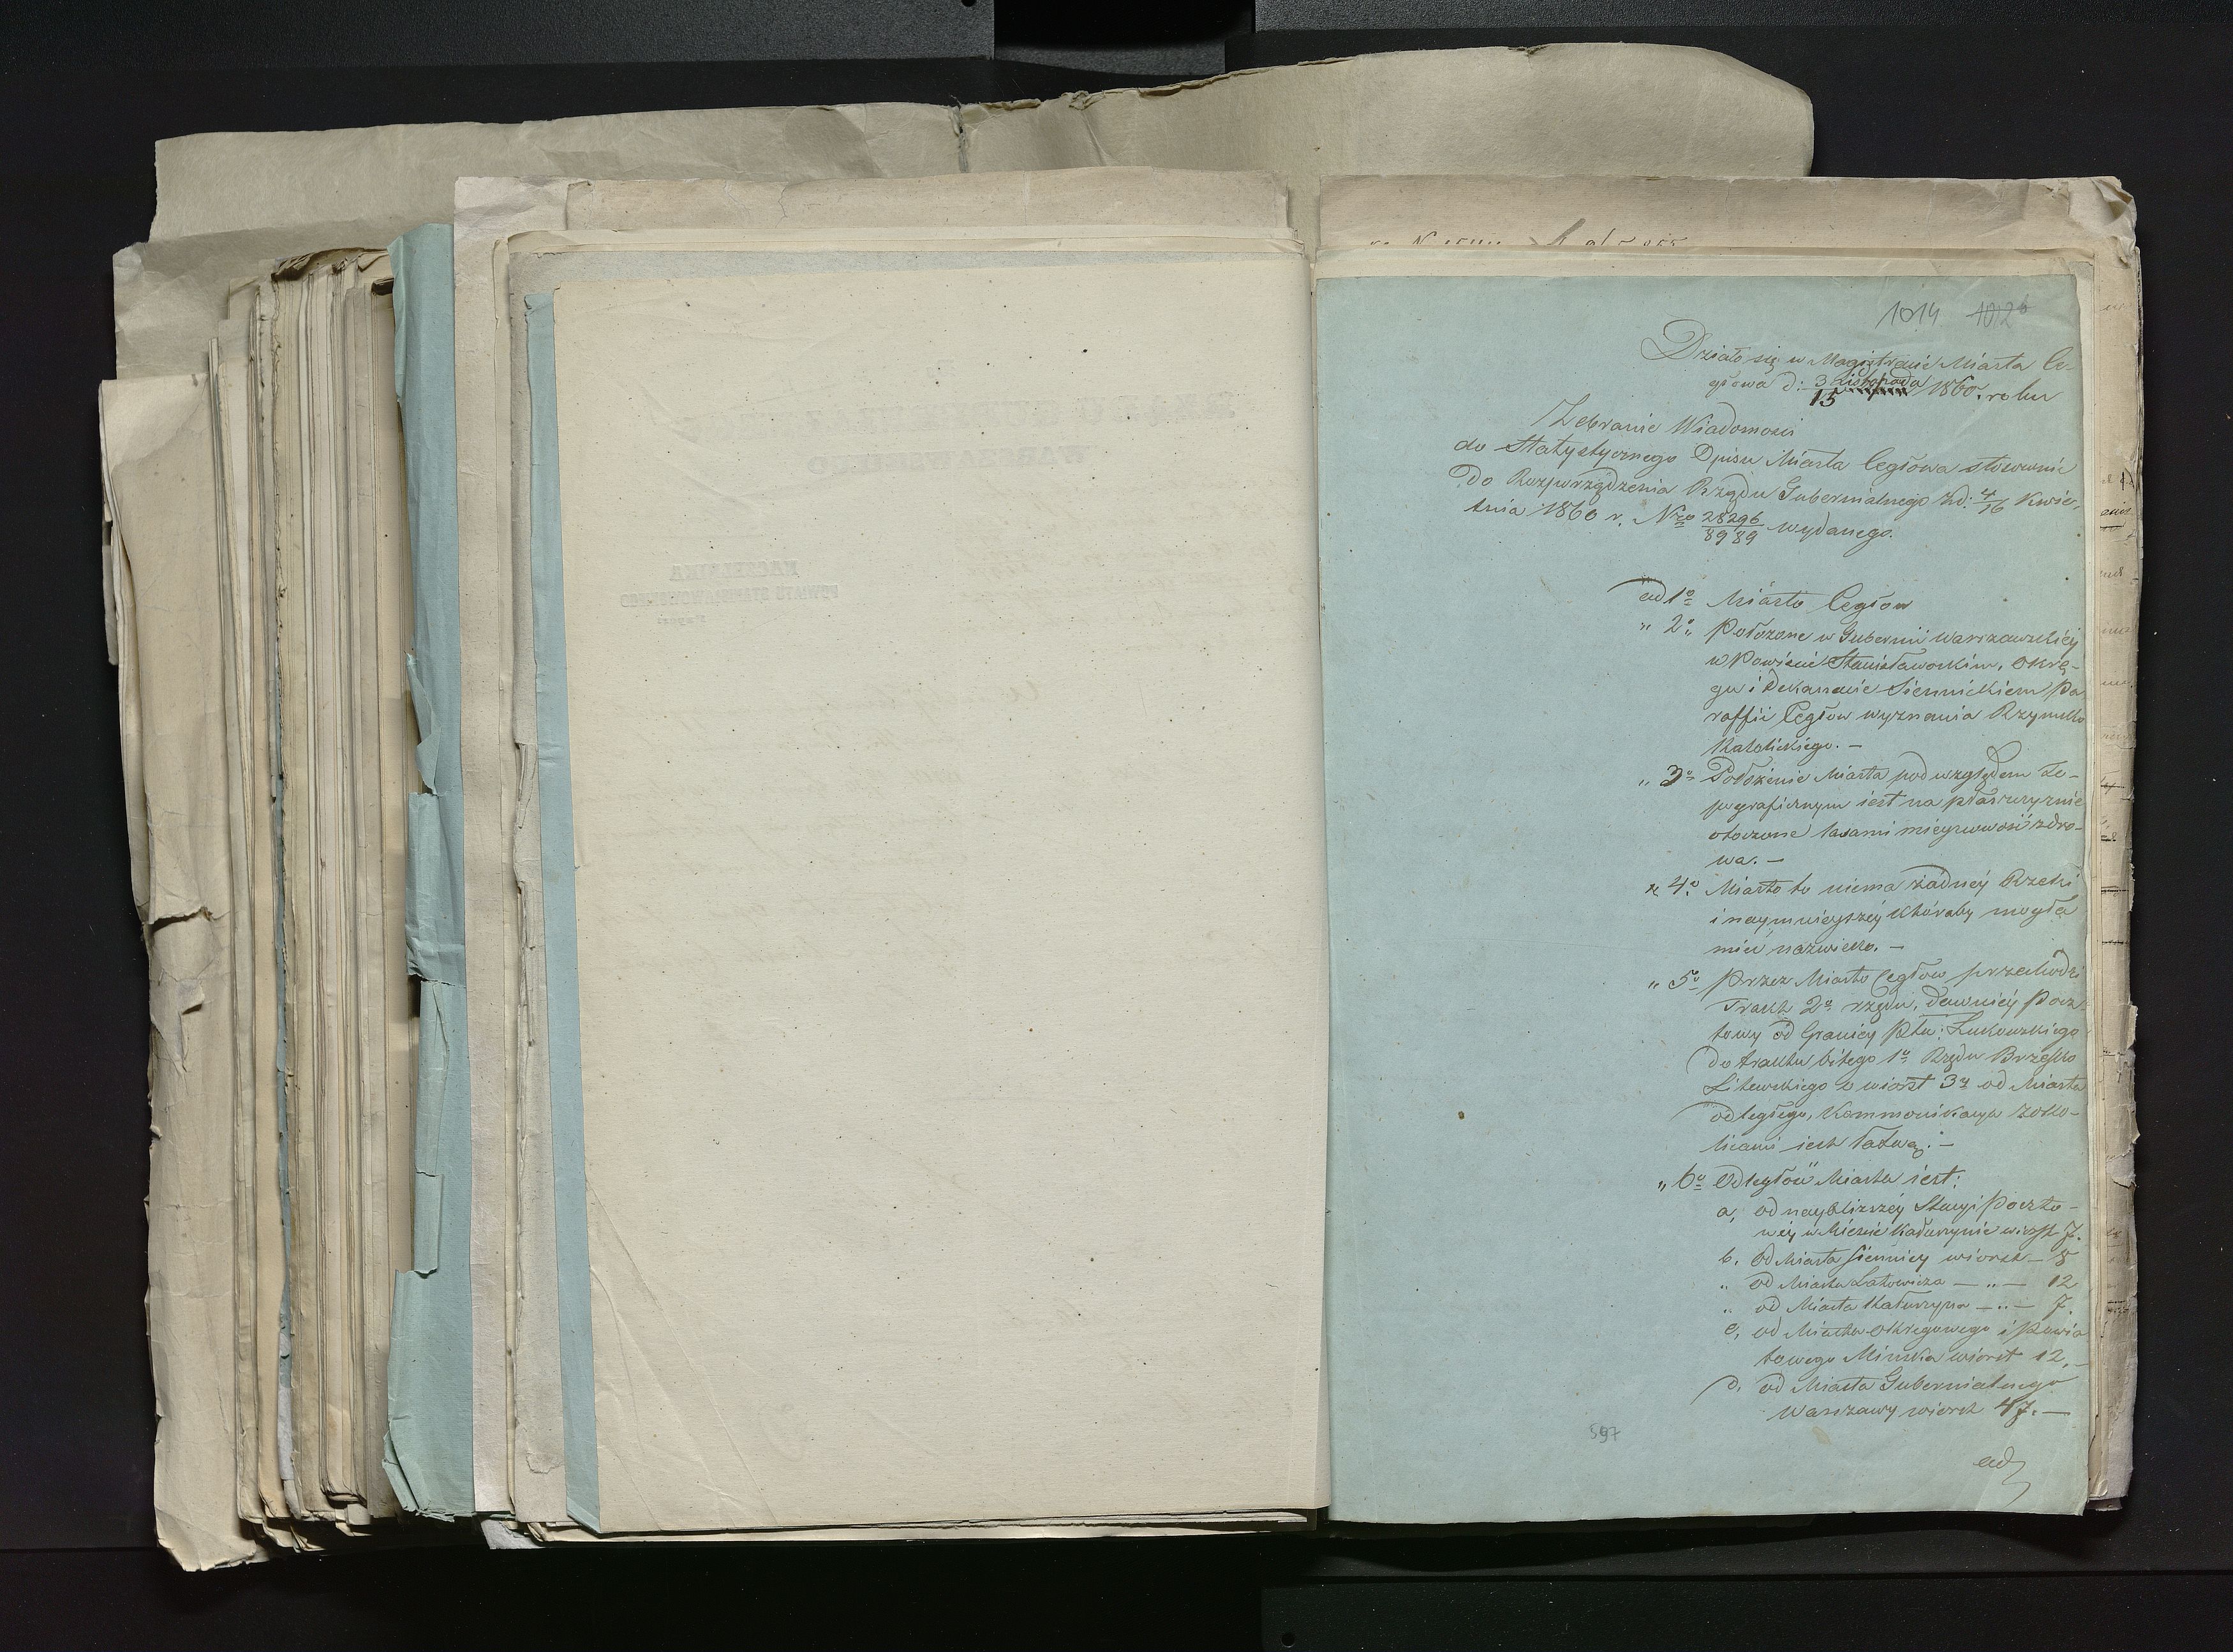 1014 1012b
Działo się w Magistracie Miasta Ce-
głowa d: 3 Listopada 1860. roku
15
Zebranie Wiadomości
do Statystycznego Opisu Miasta Cegłowa stosownie
do Rozporządzenia Rządu Gubernialnego z d: 4/16 Kwie-
tnia 1860 r. Nro 28296/8989 wydanego.
ad 1o Miasto Cegłow
" 2o Położone w Gubernii Warszawskiéy
w Powiecie Stanisławowskim, Okrę-
gu i Dekanacie Siennickiem Pa
raffii Cegłow wyznania Rzymsko
Katolickiego. —
" 3o Położenie Miasta pod względem To-
pograficznym iest na płaszczyznie
otoczone lasami mieyscowość zdro-
wa. —
" 4o Miasto to niema żadnéy Rzeki
i naymnieyszéy któraby mogła
mieć nazwisko. —
" 5o Przez Miasto Cegłow przechodzi
Trakt 2o rzędu, dawniéy Pocz-
towy od Granicy Ptu: Łukowskiego
do traktu bitego 1o Rzędu Brzesko
Litewskiego o wiorst 3y od Miasta
odległego, Kommonikacya z oko-
licami iest łatwą. —
" 6o Odległość Miasta iest:
a, od naybliższéy Stacyi Poczto-
wéy w Mienie Kałuszynie wiorst 7.
b, od Miasta Siennicy wiorst — 8
" od Miasta Latowicza — " — 12
" od Miasta Kałuszyna — " — 7.
c, od Miasta Okręgowego i Powia
towego Minska wiorst 12. —
d, od Miasta Gubernialnego
Warszawy wiorst 47. —
597
ad
NACZELNIKA
POWIATU STANISŁAWOWSKIEGO